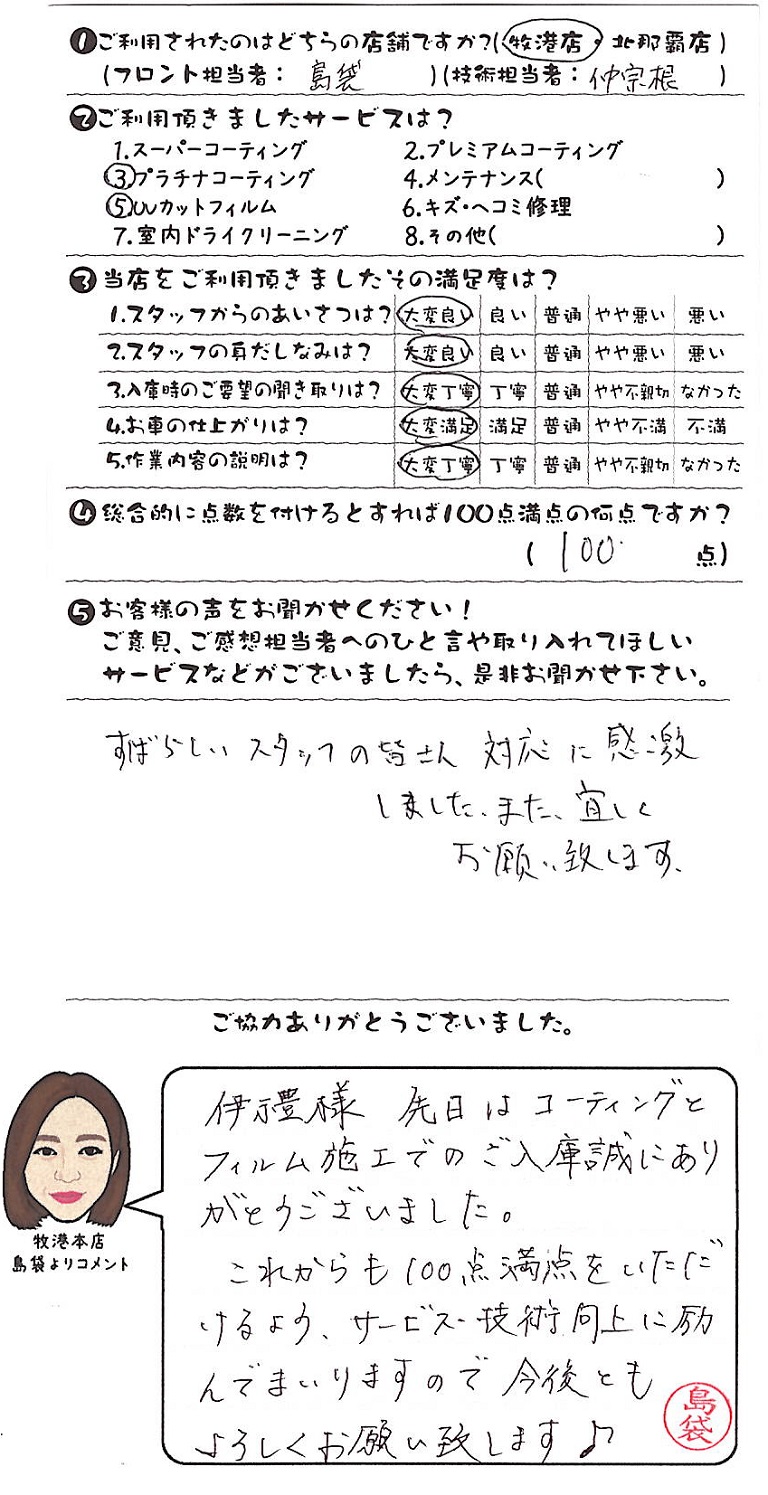 ❶ご利用されたのはどちらの店舗ですか?(牧港店・北那覇店)
(フロント担当者: 島袋 )(技術担当者: 仲宗根 )
❷ご利用頂きましたサービスは?
1.スーパーコーティング 2.プレミアムコーティング
③プラチナコーティング 4.メンテナンス( )
⑤UVカットフィルム 6.キズ・ヘコミ修理
7.室内ドライクリーニング 8.その他( )
❸当店をご利用頂きましたその満足度は?
1.スタッフからのあいさつは? 大変良い 良い 普通 やや悪い 悪い
2.スタッフの身だしなみは? 大変良い 良い 普通 やや悪い 悪い
3.入庫時のご要望の聞き取りは? 大変丁寧 丁寧 普通 やや不親切 なかった
4.お車の仕上がりは? 大変満足 満足 普通 やや不満 不満
5.作業内容の説明は? 大変丁寧 丁寧 普通 やや不親切 なかった
❹総合的に点数を付けるとすれば100点満点の何点ですか?
( 100 点)
❺お客様の声をお聞かせください!
ご意見、ご感想担当者へのひと言や取り入れてほしい
サービスなどがございましたら、是非お聞かせ下さい。
すばらしい スタッフの皆さん 対応に感激
しました、また、宜しく
お願い致します、
ご協力ありがとうございました。
伊禮様 先日はコーティングと
フィルム施工でのご入庫誠にあり
がとうございました。
これからも100点満点をいただ
けるよう、サービス・技術向上に励
んでまいりますので今後とも
よろしくお願い致します♪
島袋
牧港本店
島袋よりコメント